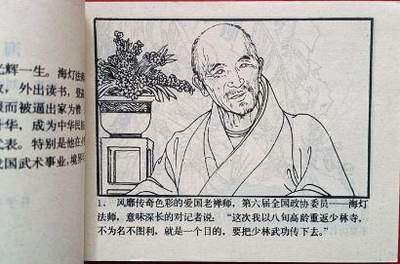 光辉一生。海灯法
，外出读书，
报而被逼出家为
升华，成为中华民
代表。特别是他在
国武术事业，境界
1. 风靡传奇色彩的爱国老禅师，第六届全国政协委员——海灯
法师，意味深长的对记者说：“这次我以八旬高龄重返少林寺，
不为名不图利，就是一个目的，要把少林武功传下去。”